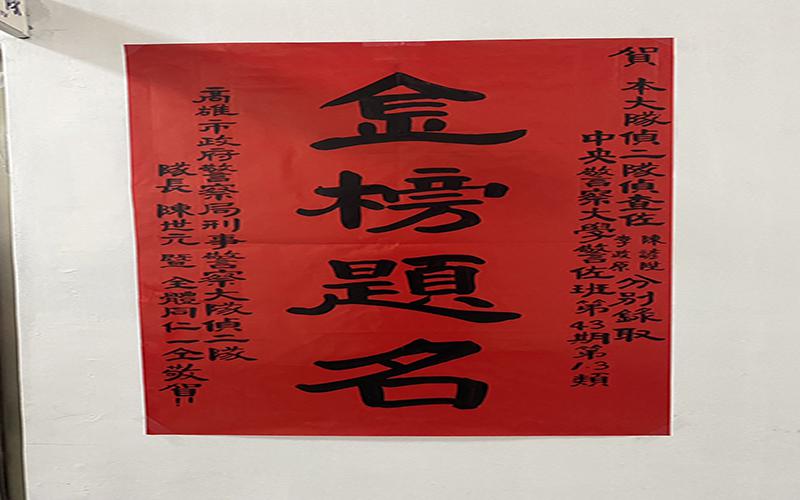 賀 本大隊偵二隊偵查佐 陳諺陞 李政宗 分別錄取
中央警察大學警佐班第43期第1.3類
金榜題名
高雄市政府警察局刑事警察大隊偵二隊
隊長 陳世元 暨 全體同仁一仝敬賀!!